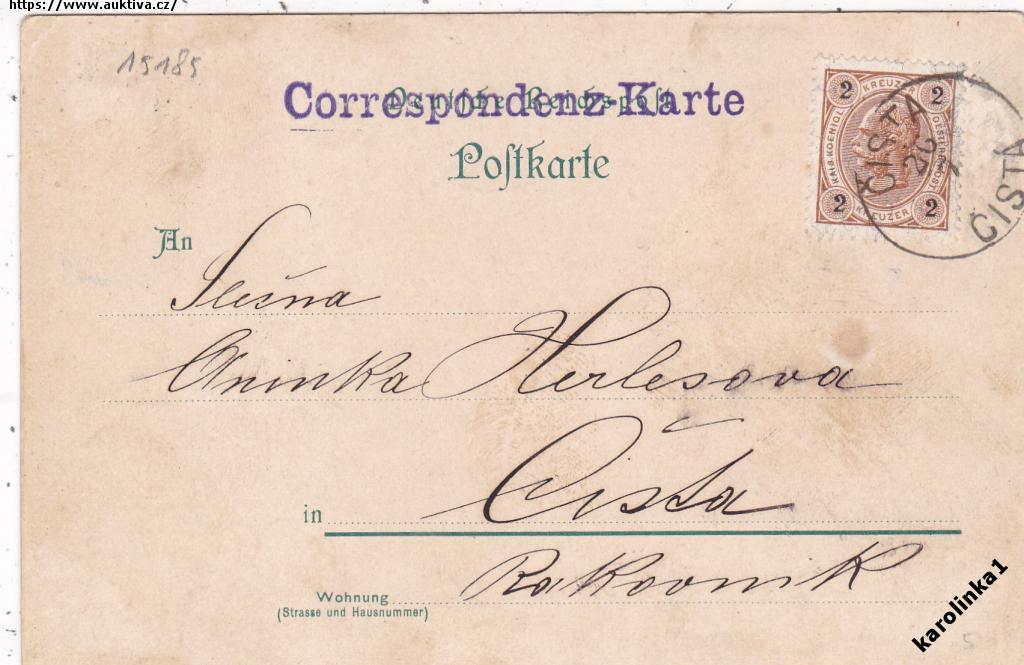 https://www.auktiva.cz/
15185
Correspondenz-Karte
Deutsche Reichspost
Postkarte
2 KREUZER 2
KAIS. KOENIGL. OESTERR. POST
2 KREUZER 2
ČISTÁ
20
ČISTÁ
An
Slečna
Aninka Herlesova
in Čista
Rakovnik
Wohnung
(Strasse und Hausnummer)
karolinka1